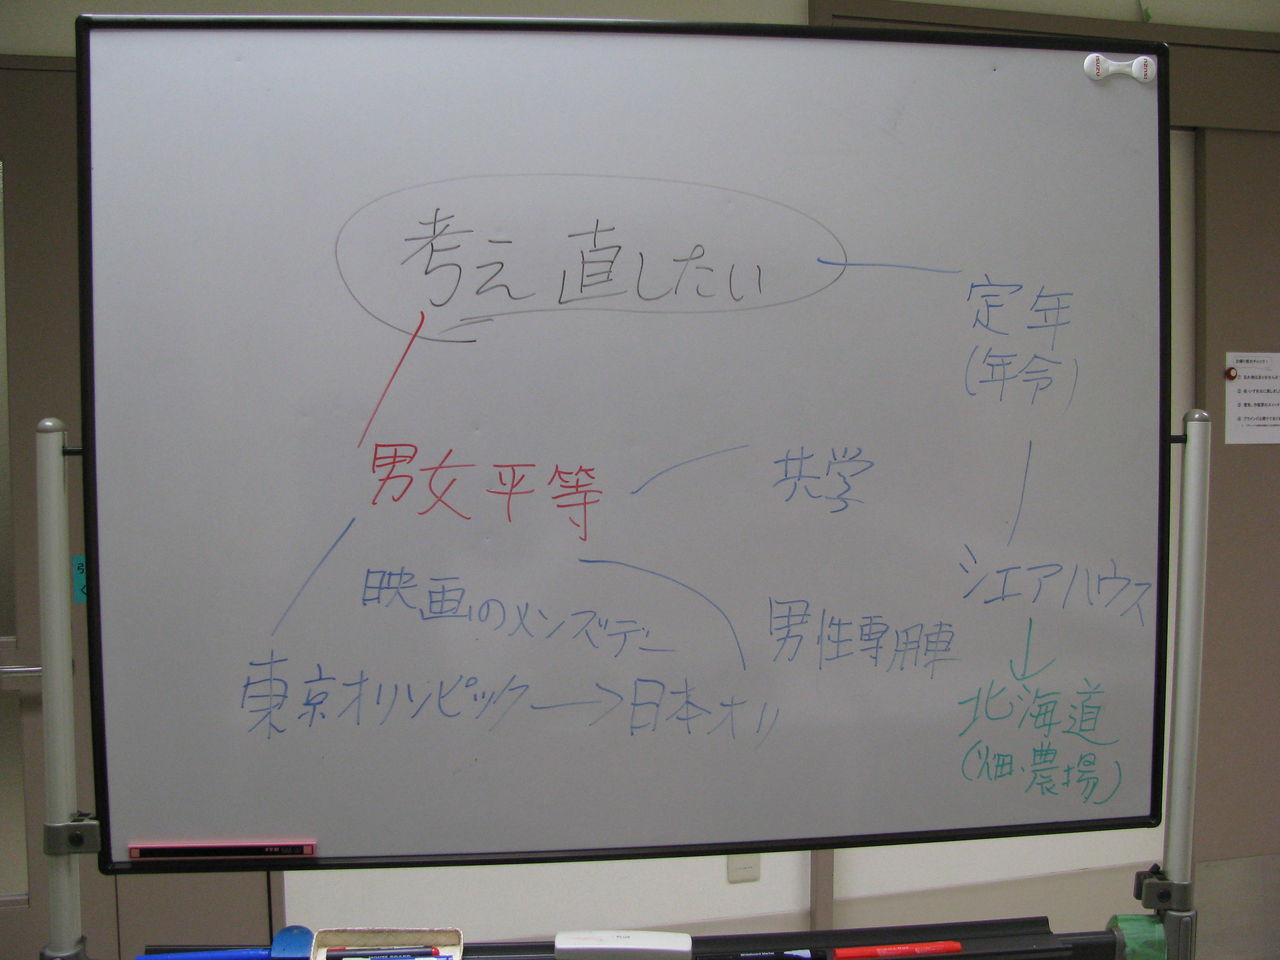 考え直したい
定年
(年令)
男女平等
共学
シエアハウス
映画のメンズデー
男性専用車
東京オリンピック→日本オリ
北海道
(畑・農場)